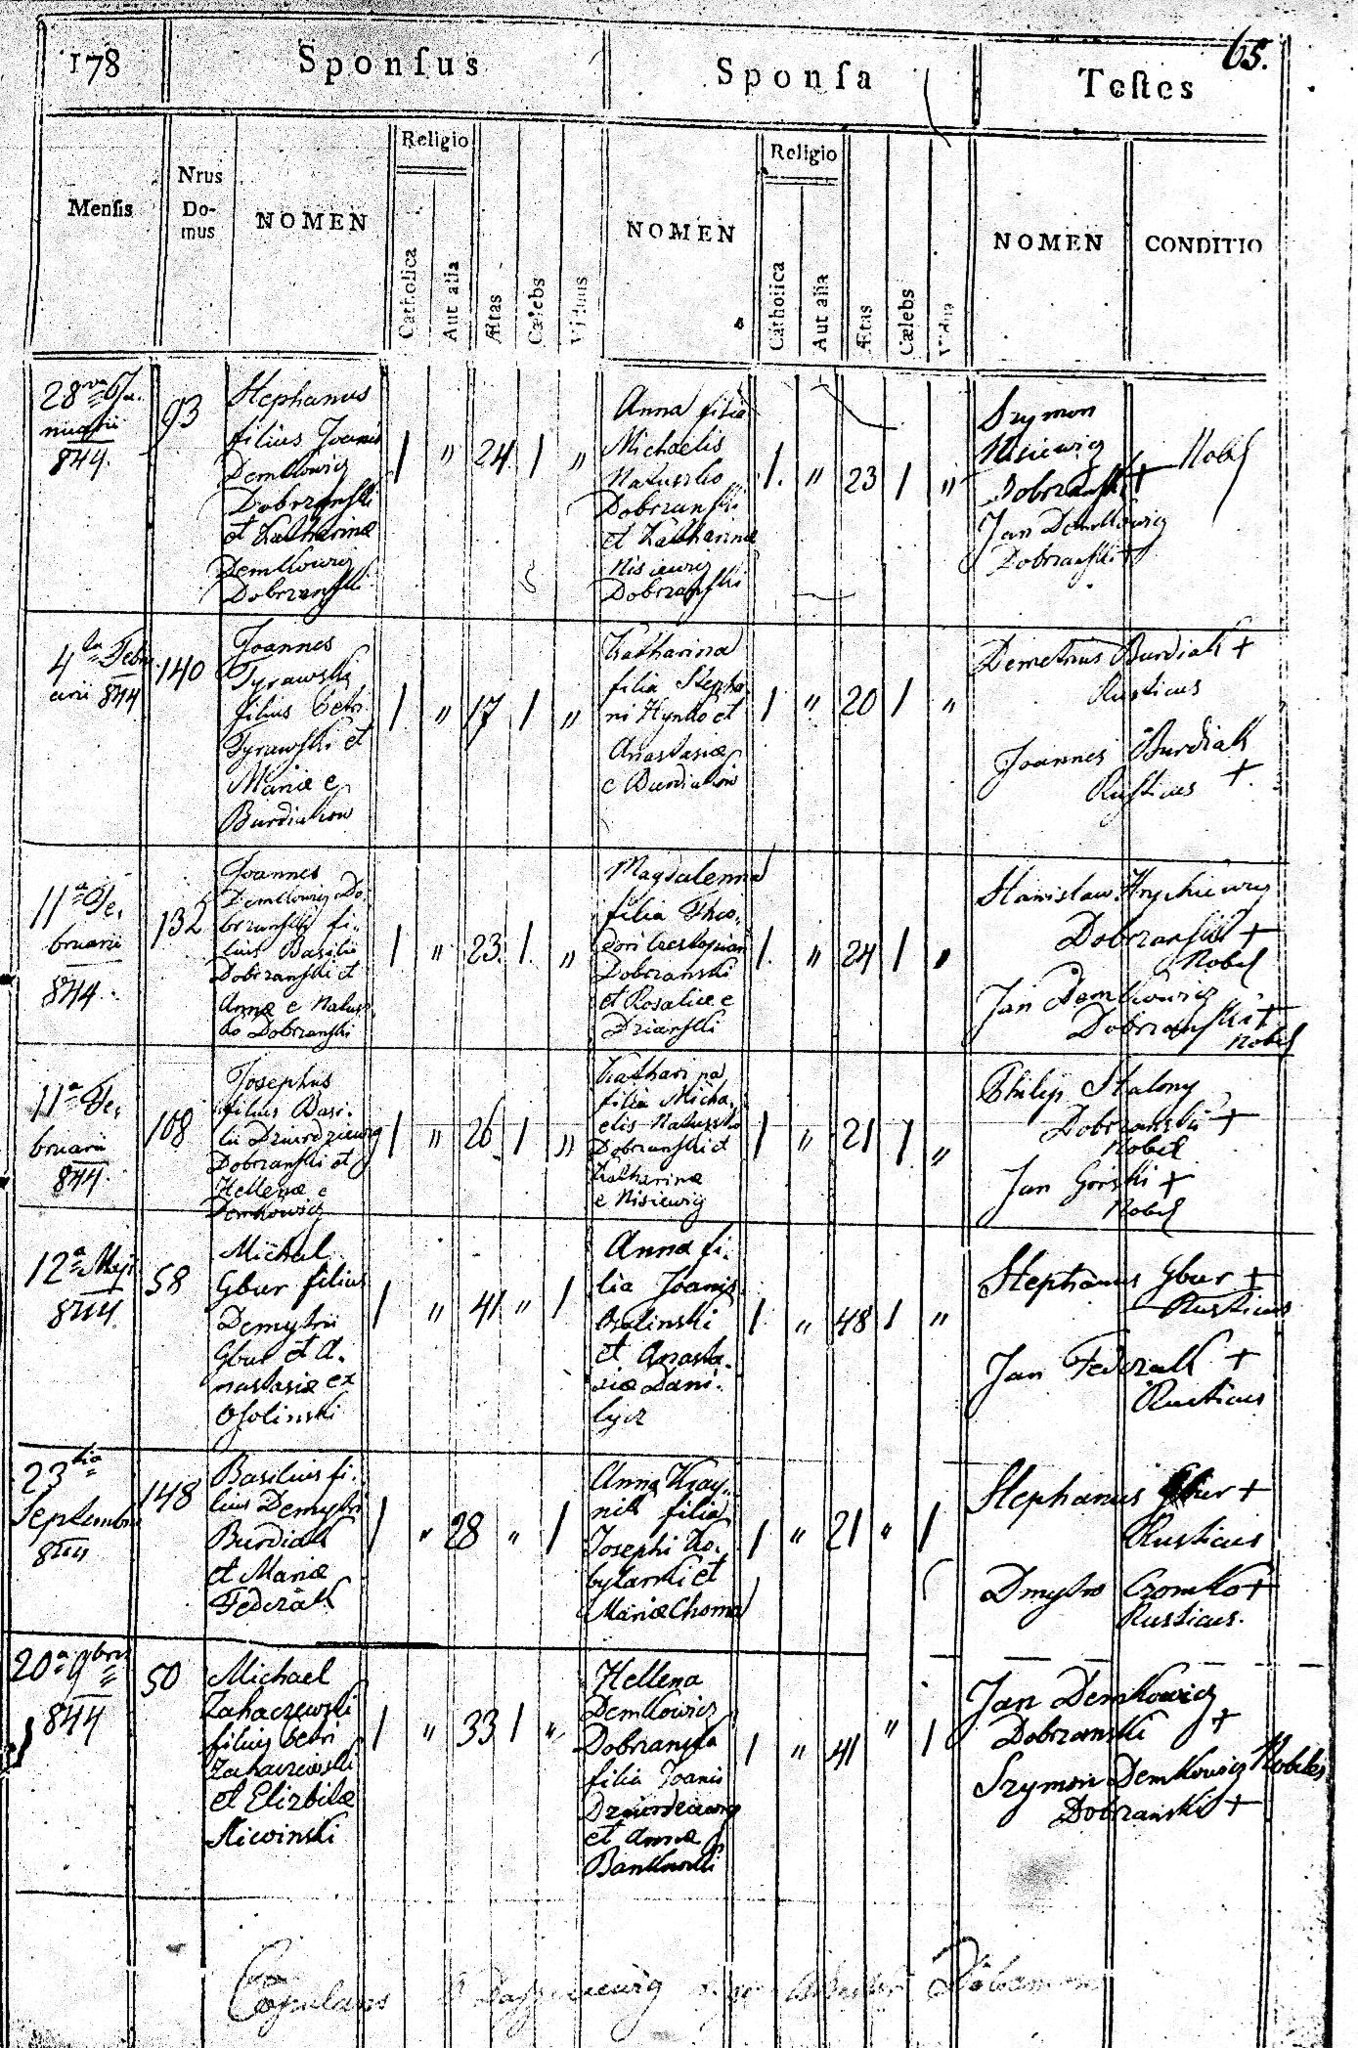 65.
178
Sponſus
Sponſa
Teſtes
Menſis
Nrus
Do-
mus
NOMEN
Religio
Catholica
Aut alia
Ætas
Cælebs
Viduus
NOMEN
Religio
Catholica
Aut alia
Ætas
Cælebs
Vidua
NOMEN
CONDITIO
28va Ja
nuarii
844.
93
Stephanus
filius Joanis
Demkowicz
Dobrzanski
et Katharinæ
Demkowicz
Dobrzanski
1 " 24. 1 "
Anna filia
Michaelis
Matuszko
Dobrzanski
et Katharinæ
Nisiewicz
Dobrzanski
1. " 23 1 "
Szymon
Nisiewicz
Dobrzanski +
Jan Demkowicz
Dobrzanski +
Nobil
4ta Febru
arii 844
140
Joannes
Tyrawski
filius Petri
Tyrawski et
Mariæ e
Burdiakow
1 " 17 1 "
Katharina
filia Stepha
ni Hynko et
Anastasiæ
e Burdiakow
1 " 20 1 "
Demetrius Burdiak +
Rusticus
Joannes Burdiak
Rusticus +
11a Fe,
bruarii
844.
132
Joannes
Demkowicz Do,
brzanski fi,
lius Basilii
Dobrzanski et
Annæ e Matusz
ko Dobrzanski
1 " 23. 1. "
Magdalenna
filia Theo,
dori
Dobrzanski
et Rosaliæ e
1. " 24 1 "
Stanislaw
Dobrzanski +
Nobil
Jan Demkowicz
Dobrzanski +
Nobil
11a Fe,
bruarii
844.
108
Josephus
filius Basi,
lii Dziurdziewicz
Dobrzanski et
Hellenæ e
Demkowicz
1 " 26 1 "
Kathari na
filia Micha,
elis Matuszko
Dobrzanski et
Katharinæ
e Nisiewicz
1 " 21 1 "
Philip Stalony
Dobrzanski +
Nobil
Jan Gorski +
Nobil
12a Maji
844.
58
Michal
Gbur filius
Demytrii
Gbur et A,
nastasiæ ex
Osolinski
1 " 41 " 1
Anna fi,
lia Joanis
Osolinski
et Anasta,
siæ Dani,
lycz
1 " 48 1 "
Stephanus Gbur +
Rusticus
Jan Fedczak +
Rusticus
23tia
Septembris
844
148
Basilius fi,
lius Demytri
Burdiak
et Mariæ
Fedczak
1 " 28 " 1
Anna Kray,
nik filia
Josephi Ko,
bylarski et
Mariæ Choma
1 " 21 " 1
Stephanus Gbur +
Rusticus
Dmytro Cromko +
Rusticus.
20a 9bris
844
50
Michael
Zahaczewski
filius Petri
Zahaczewski
et Elizbitæ
Sliwinski
1 " 33 1 "
Hellena
Demkowicz
Dobrzanska
filia Joanis
Dziurdziewicz
et Annæ
Bankowski
1 " 41 " 1
Jan Demkowicz
Dobrzanski +
Szymon Demkowicz Nobiles
Dobrzanski +
Copulans